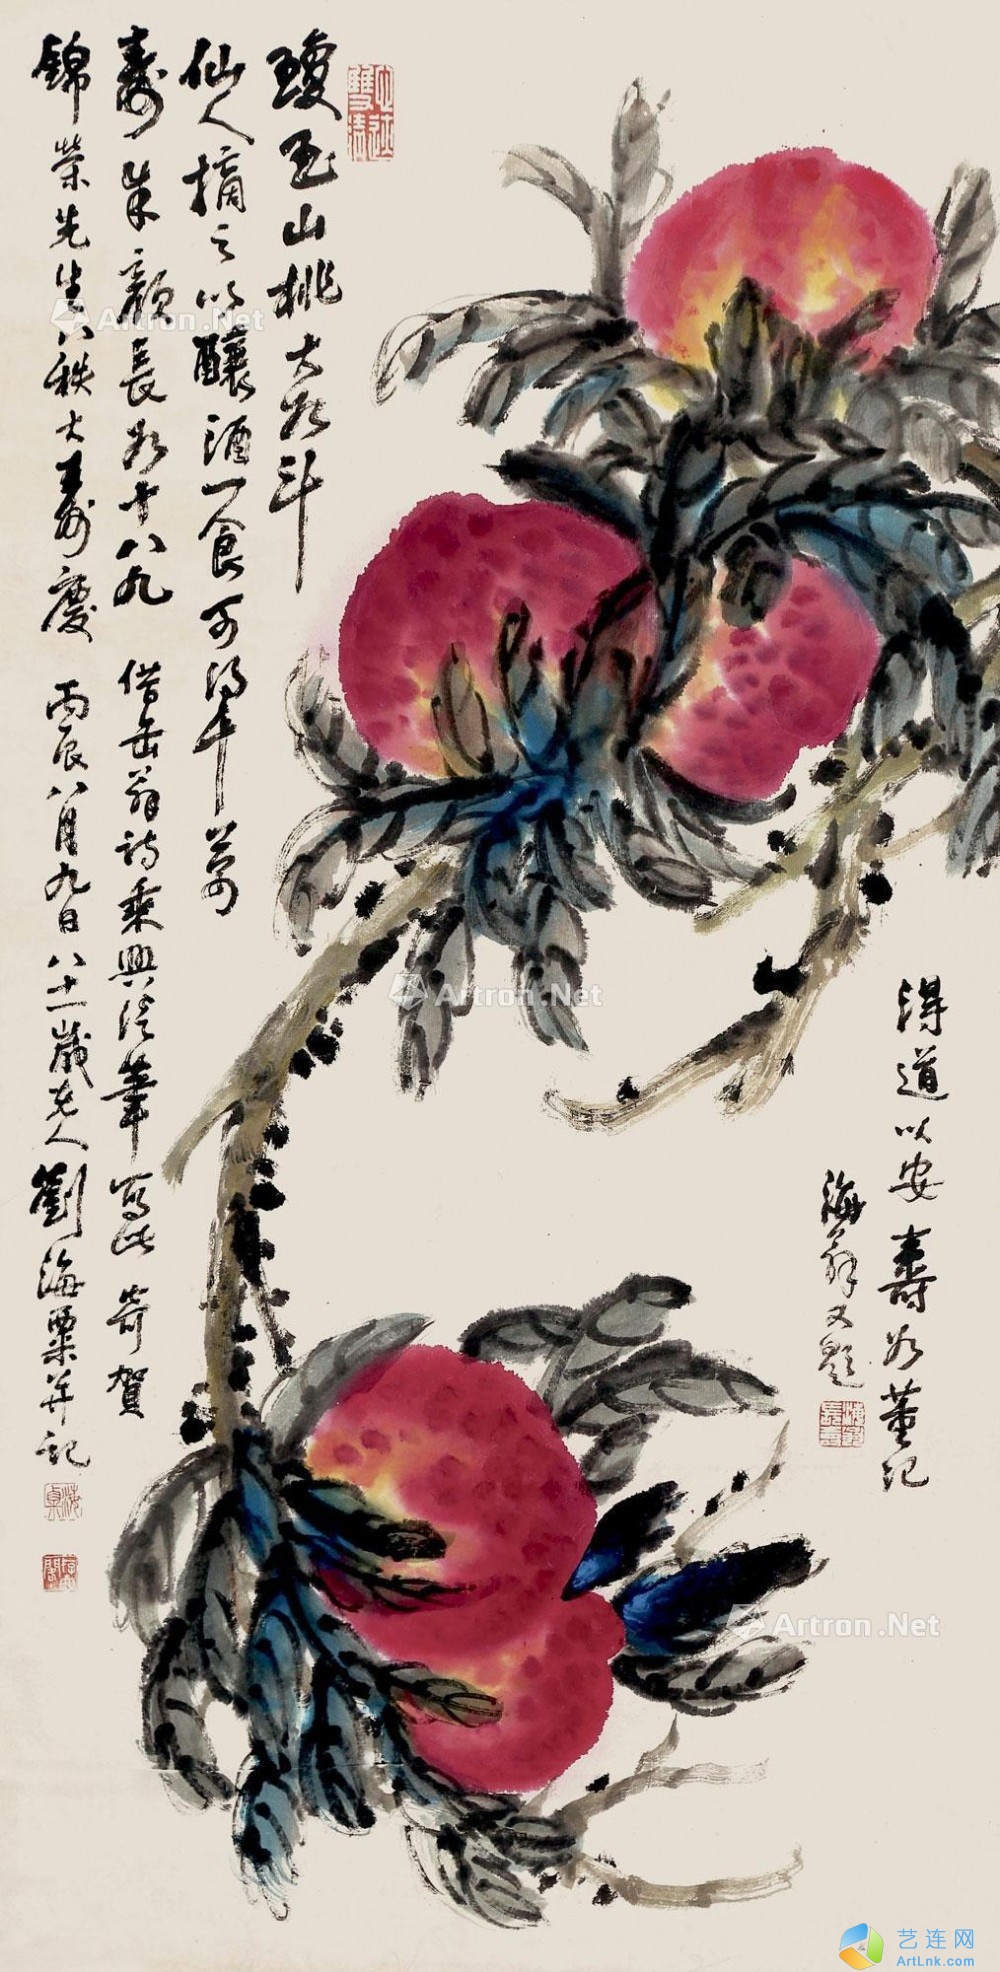 瓊玉山桃大如斗
仙人摘之以釀酒一食可得千萬
壽朱顏長如十八九 借缶翁詩乘興潑筆寫此寄賀
錦榮先生八秩大壽慶 丙辰八月九日八十一歲老人劉海粟并記
得道以安壽如董記
海翁又題
Artron.Net
Artron.Net
Artron.Net
艺连网
ArtLnk.com